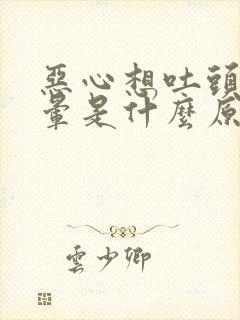 惡心想吐頭
暈是什麼原
雲少卿